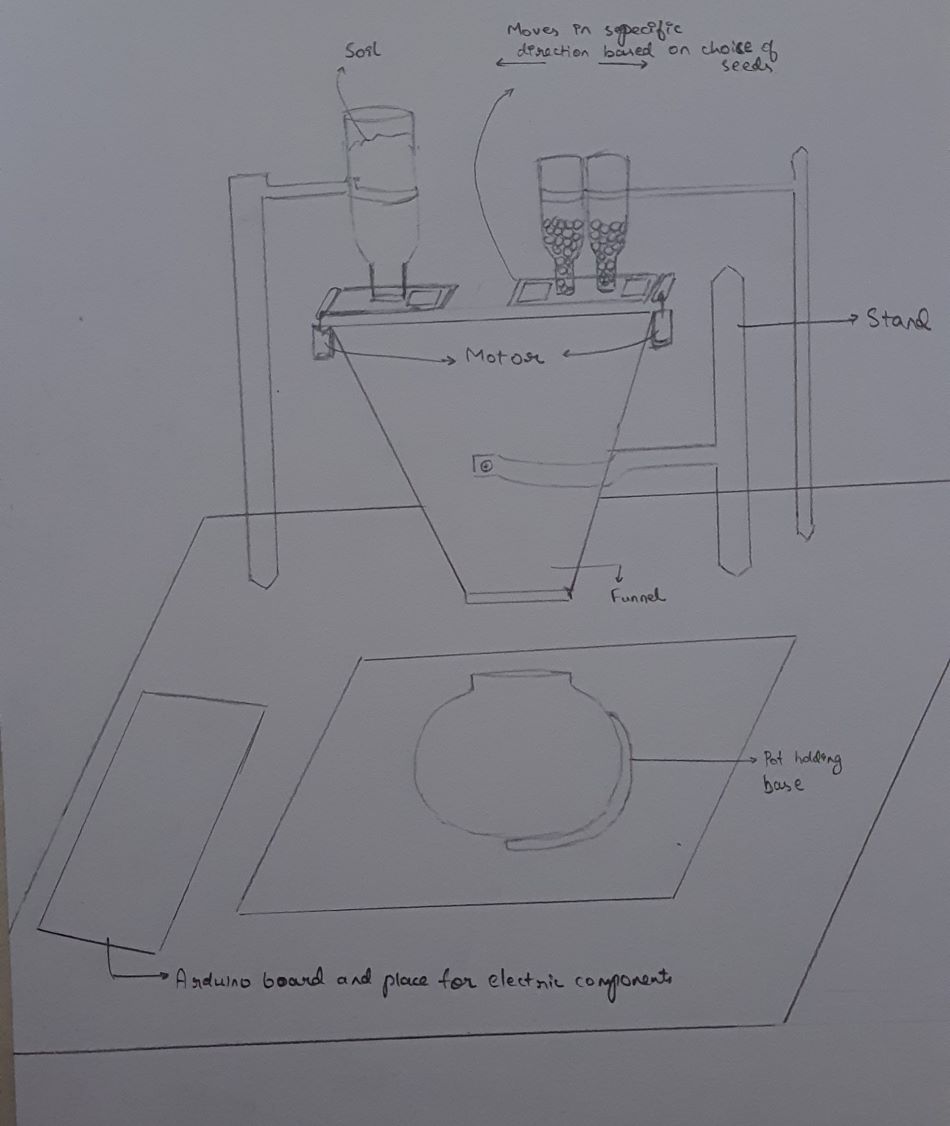 Soil
Moves in sopecific
direction based on choice of
seeds
Stand
Motor
Funnel
Pot holding
base
Arduino board and place for electric components